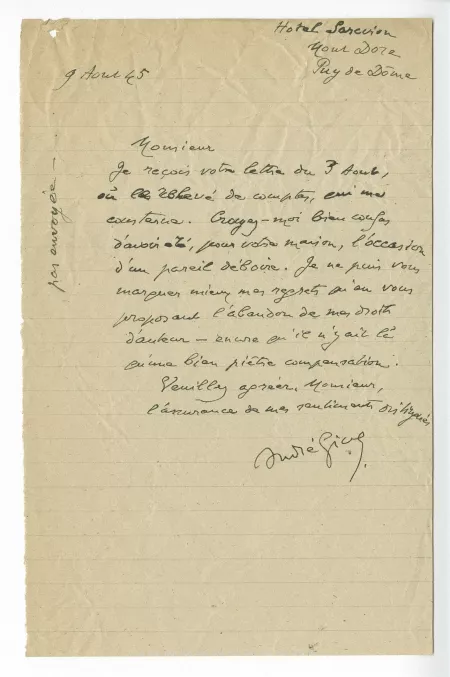 Hotel Sarciron
Mont Dore
Puy de Dôme
9 Aout 45
pas envoyée —
Monsieur
Je reçois votre lettre du 3 Aout,
où le relevé de comptes, qui me
consterne. Croyez-moi bien confus
d'avoir été, pour votre maison, l'occasion
d'un pareil déboire. Je ne puis vous
marquer mieux mes regrets qu'en vous
proposant l'abandon de mes droits
d'auteur – encore qu'il n'y ait là
qu'une bien piètre compensation.
Veuillez agréer, Monsieur,
l'assurance de mes sentiments distingués
André Gide.